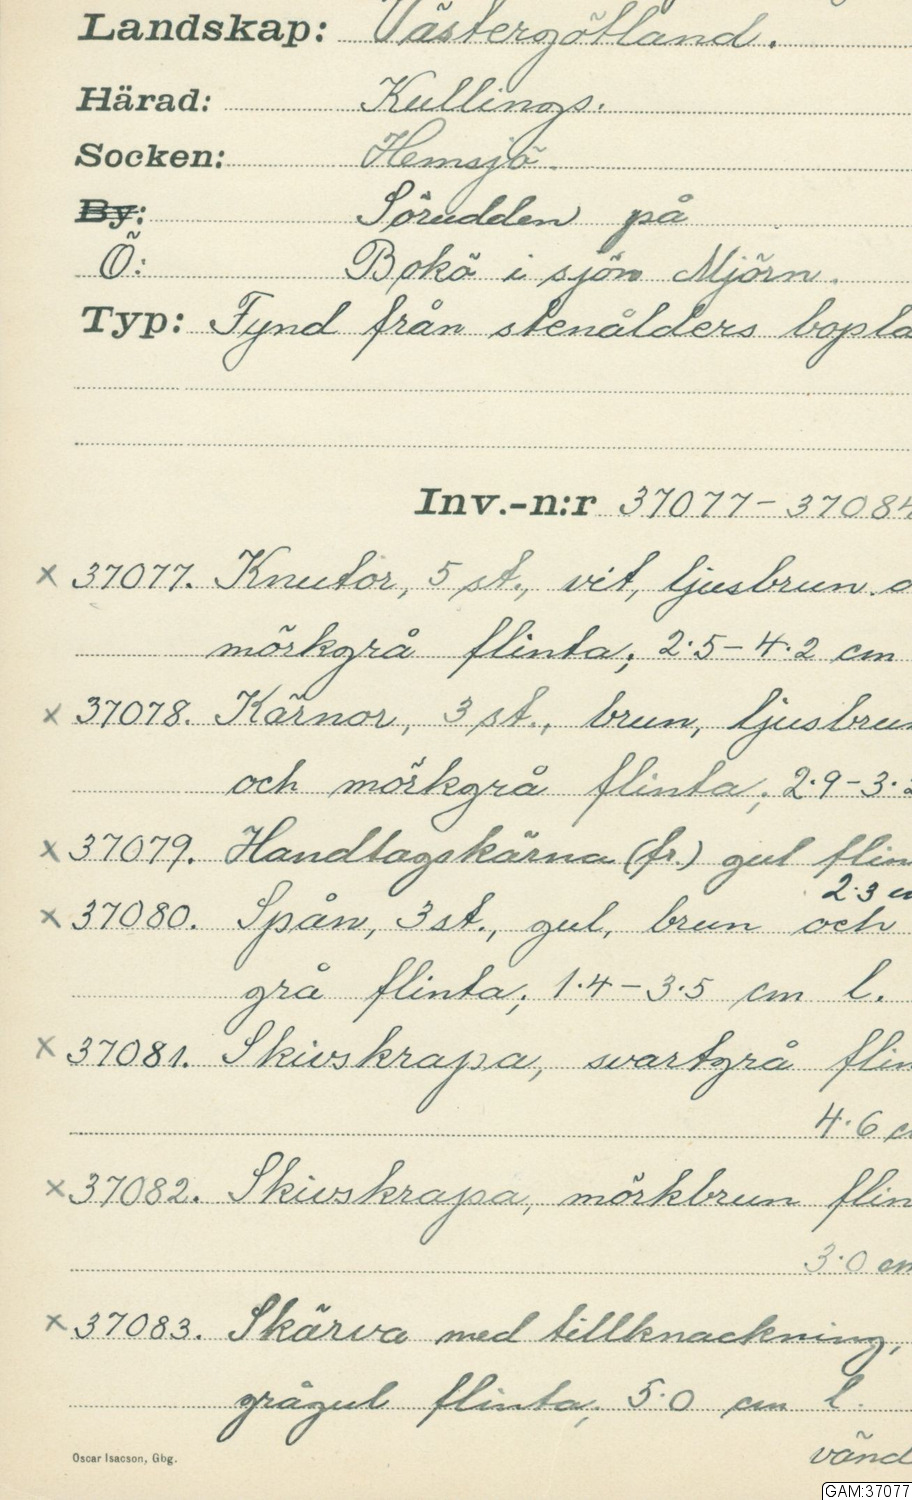 Landskap: Västergötland.
Härad: Kullings.
Socken: Hemsjö.
By: Sörudden på
Ö: Bokö i sjön Mjörn.
Typ: Fynd från stenålders bopla
Inv.-n:r 37077-37084
× 37077. Knutor, 5 st., vit, ljusbrun o
mörkgrå flinta; 2.5-4.2 cm
× 37078. Kärnor, 3 st., brun, ljusbrun
och mörkgrå flinta; 2.9-3.2
× 37079. Handtagskärna (fr.) gul flin
2.3 c
× 37080. Spån, 3 st., gul, brun och
grå flinta; 1.4-3.5 cm l.
× 37081. Skivskrapa, svartgrå flin
4.6 c
× 37082. Skivskrapa, mörkbrun flin
3.0 cm
× 37083. Skärva med tillknackning,
grågul flinta; 5.0 cm l.
vänd
Oscar Isacson, Gbg.
GAM:37077